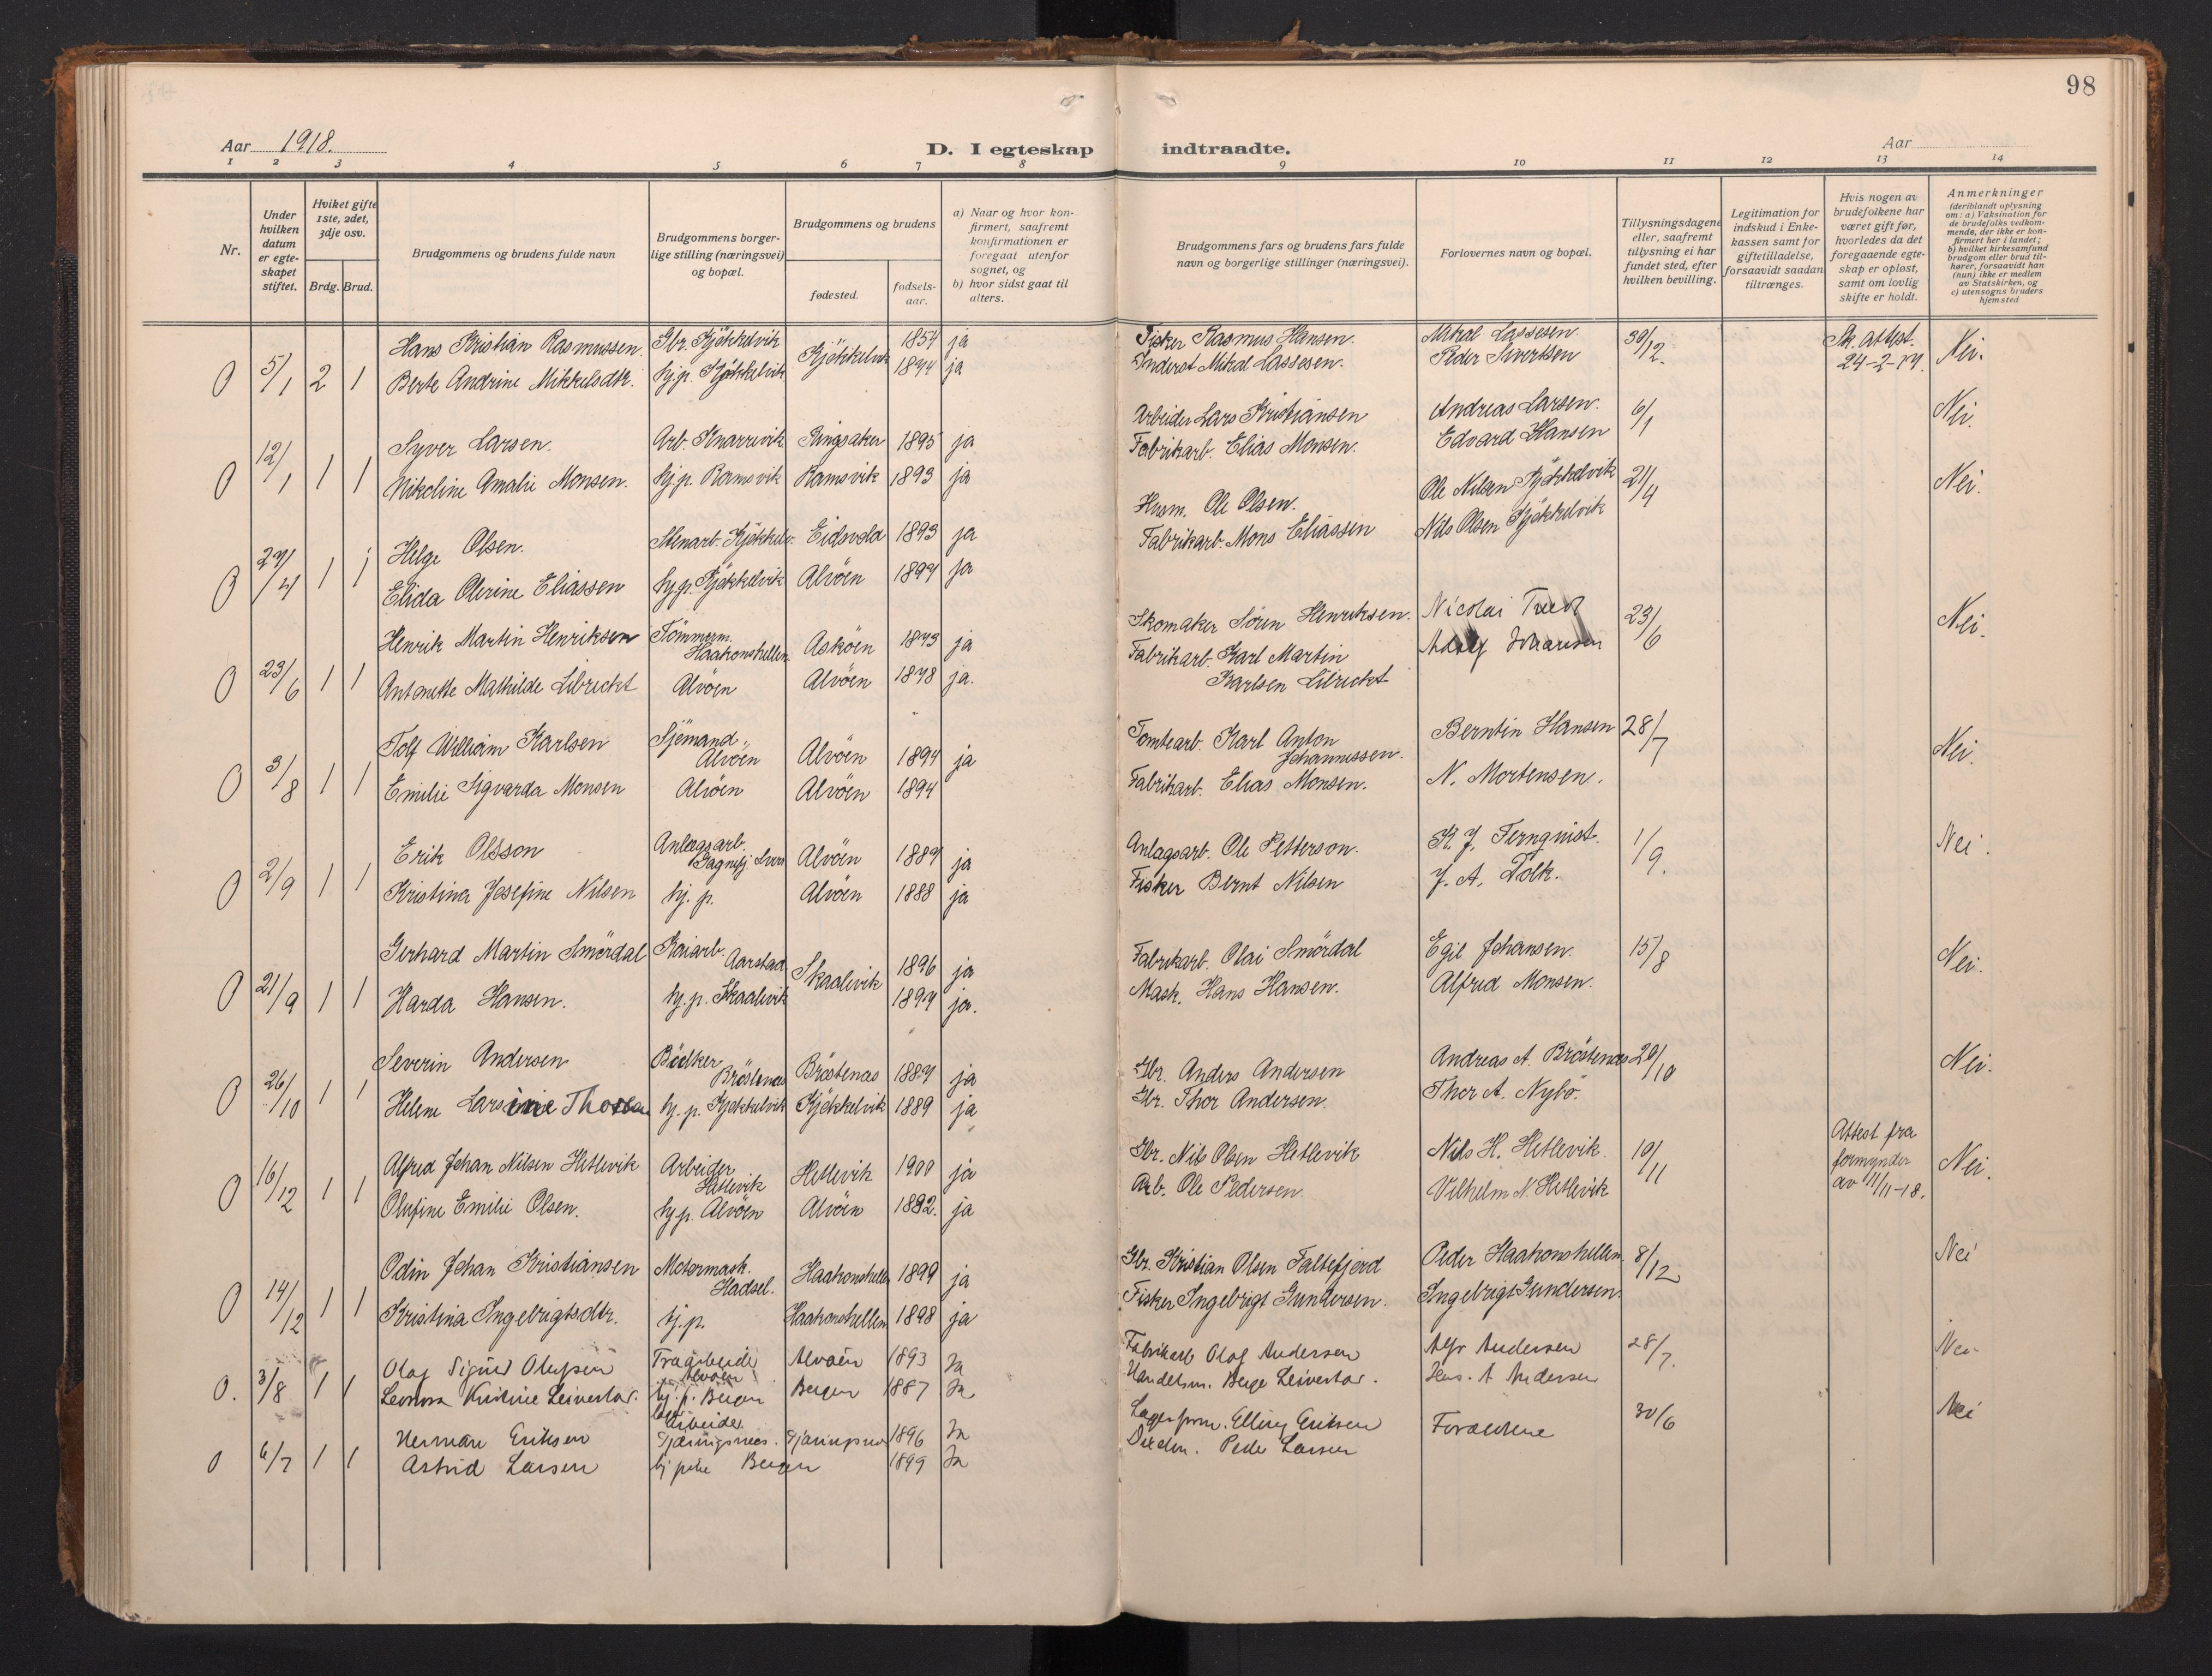 98
Aar 1918.
D. I egteskap indtraadte.
Aar
1 2 3 4 5 6 7 8 9 10 11 12 13 14
Nr.
Under hvilken datum er egteskapet stiftet.
Hviket gifte 1ste, 2det, 3dje osv.
Brdg. Brud.
Brudgommens og brudens fulde navn
Brudgommens borgerlige stilling (næringsvei) og bopæl.
Brudgommens og brudens
fødested.
fødselsaar.
a) Naar og hvor konfirmert, saafremt konfirmationen er foregaat utenfor sognet, og
b) hvor sidst gaat til alters.
Brudgommens fars og brudens fars fulde navn og borgerlige stillinger (næringsvei).
Forlovernes navn og bopæl.
Tillysningsdagene eller, saafremt tillysning ei har fundet sted, efter hvilken bevilling.
Legitimation for indskud i Enkekassen samt for giftetilladelse, forsaavidt saadan tiltrænges.
Hvis nogen av brudefolkene har været gift før, hvorledes da det foregaaende egteskap er opløst, samt om lovlig skifte er holdt.
Anmerkninger (deriblandt oplysning om: a) Vaksination for de brudefolks vedkommende, der ikke er konfirmert her i landet; b) hvilket kirkesamfund brudgom eller brud tilhører, forsaavidt han (hun) ikke er medlem av Statskirken, og c) utensogns bruders hjemsted
Hans Kristian Rasmussen. Gbr. Kjøkkelvik Kjøkkelvik 1854 ja Fisker Rasmus Hansen. Mikal Lassesen. 30/12. Sk. attest. 24-2-17. Nei.
O 5/1 2 1 Berte Andrine Mikkelsdtr. hj.p. Kjøkkelvik 1874 ja Inderst Mikal Lassesen. Peder Sivertsen
Syver Larsen. Arb. Knarrevik Ringsaker 1895 ja Arbeider Lars Kristiansen Andreas Larsen. 6/1 Nei.
O 12/1 1 1 Nikoline Amalie Monsen. hj.p. Ramsvik Ramsvik 1893 ja Fabrikarb. Elias Monsen. Edvard Hansen
Helge Olsen. Stenarb. Kjøkkelv. Eidsvold 1893 ja Husm. Ole Olsen. Ole Nilsen Kjøkkelvik 21/4 Nei.
O 27/4 1 1 Elida Olerine Eliassen hj.p. Kjøkkelvik Alvøen 1897 ja Fabrikarb. Mons Eliassen Nils Olsen Kjøkkelvik
Henrik Martin Henriksen Tömmerm. Haakonshellen Askøen 1873 ja Skomaker Sören Henriksen. Nicolai 23/6 Nei.
O 23/6 1 1 Antonette Mathilde Librickt Alvøen Alvøen 1878 ja. Fabrikarb. Karl Martin Karlsen Librickt Johansen
Tolf William Karlsen Sjømand. Alvøen Alvøen 1894 ja Tomtearb. Karl Anton Johannessen. Berntin Hansen 28/7 Nei.
O 3/8 1 1 Emilie Sigvarda Monsen Alvøen Alvøen 1894 Fabrikarb. Elias Monsen. N. Mortensen.
Erik Olsson Anlægsarb. Alvøen 1889 ja Anlagsarb. Ole Petterson. K. J. Fernquist. 1/9. Nei.
O 2/9 1 1 Kristina Josefine Nilsen hj. p. Alvøen 1888 ja Fisker Bernt Nilsen J. A. Tolk.
Gerhard Martin Smördal Kaiarb. Aarstad Skaalevik 1896 ja Fabrikarb. Olai Smördal Egil Johansen. 15/8 Nei.
O 21/9 1 1 Harda Hansen. hj. p. Skaalevik 1897 ja. Mask. Hans Hansen. Alfred Monsen.
Severin Andersen Bödker Bröstenæs Bröstenæs 1887 ja Gbr. Anders Andersen Andreas A. Bröstenæs 20/10 Nei.
O 26/10 1 1 Helene Larsine hj. p. Kjøkkelvik Kjøkkelvik 1889 ja Gbr. Thor Andersen. Thor A. Nybö.
Alfred Johan Nilsen Hetlevik Arbeider Hetlevik Hetlevik 1900 ja Gbr. Nils Olsen Hetlevik Nils H. Hetlevik. 10/11 Attest fra formynder av 11/11-18. Nei.
O 16/12 1 1 Olufine Emilie Olsen. hj.p. Alvøen Alvøen 1892. ja Arb. Ole Pedersen. Vilhelm N. Hetlevik
Odin Johan Kristiansen Motormask. Hadsel. Haakonshellen 1899 ja Gbr. Kristian Olsen Faltefjord Peder Haakonshellen 8/12 Nei
O 14/12 1 1 Kristina Ingebrigtsdtr. hj.p. Haakonshellen 1898 ja Fisker Ingebrigt Gundersen. Ingebrigt Gundersen.
Olaf Sigurd Olufsen Alvøen Alvøen 1893 Ja Fabrikarb Olaf Andersen Alfr Andersen 28/7. Nei
O. 3/8 1 1 Leonora Kristine Leivestad. hj. p. Bergen Bergen 1887 Ja Handelsm. Berge Leivestad. A Andersen
Herman Eriksen Arbeider 1896 Ja Elling Eriksen Forældrene 30/6 Nei
O 6/7 1 1 Astrid Larsen Bergen 1899 Ja Peder Larsen